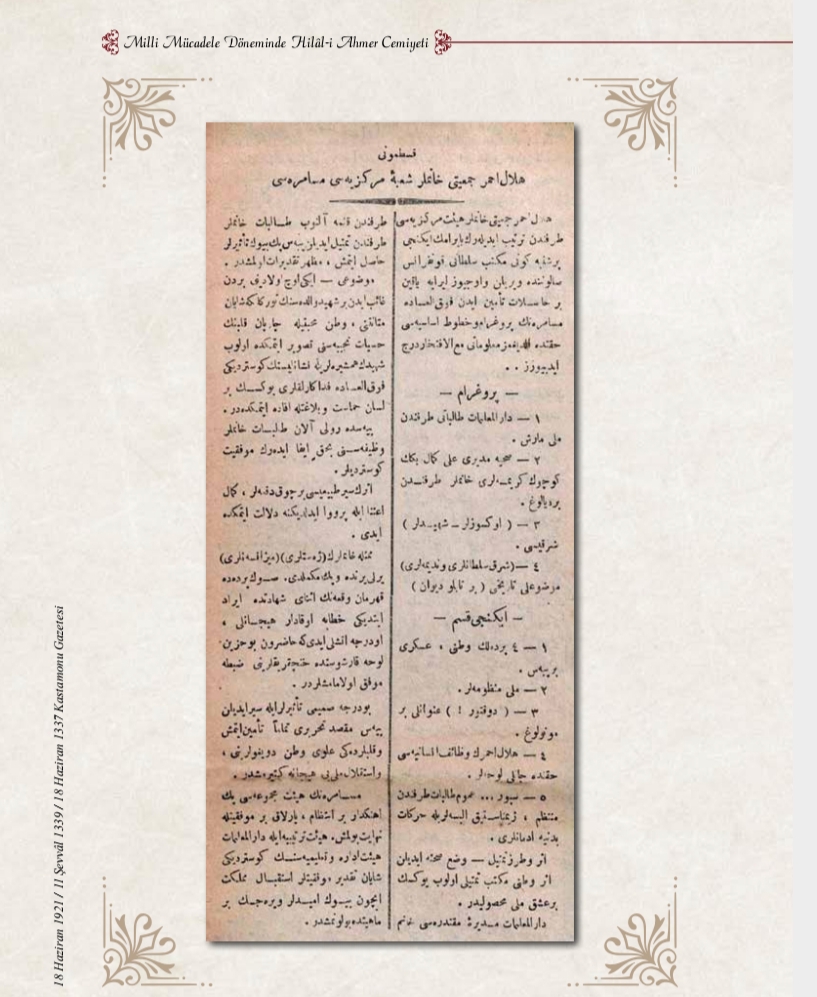 Milli Mücadele Döneminde Hilâl-i Ahmer Cemiyeti
قسطمونی
هلال احمر جمعیتی خانملر شعبهٔ مرکزیه‌سی مسامره‌سی
هلال احمر جمعیتی خانملر هیئت مرکزیه‌سی
طرفندن ترتیب ایدیله‌رك بایرامك ایكنجی
پرشنبه كونی مكتب سلطانی قونفرانس
صالوننده ویریلن واوچیوز لیرایه یاقین
بر حاصلات تأمین ایدن فوق‌العاده
مسامره‌نك پروغرام و خطوط اساسیه‌سی
حقنده معلوماتی مع‌الافتخار درج
ایدییورز ..
— پروغرام —
۱ — دارالمعلمات طالباتی طرفندن
ملی مارش .
۲ — صحیه مدیری علی كمال بكك
كوچوك كریمه‌لری خانملر طرفندن
بر دیالوغ .
۳ — ( اوكسوزلر — شهیدلر )
شرقیسی .
٤ — (شرق سلطانلری وندیمه‌لری)
موضوعلی تاریخی ( بر تابلو دیوان )
— ایكنجی قسم —
۱ — ٤ پرده‌لك وطنی ، عسكری
بر پیه‌س .
۲ — ملی منظومه‌لر .
۳ — ( دوقتور ! ) عنوانلی بر
مونولوغ .
٤ — هلال احمرك وظائف انسانیه‌سی
حقنده جانلی لوحه‌لر .
٥ — سپور ... عموم طالبات طرفندن
منتظم ، ژیمناستیق البسه‌لریله حركات
بدنیه ادمانلری .
اثر وطرز تمثیل — وضع صحنه ایدیلن
اثر وطنی مكتب تمثیلی اولوب یوكسك
بر عشق ملی محصولیدر .
دارالمعلمات مدیرهٔ مقتدره‌سی خانم
طرفندن قلمه آلنوب طالبات خانملر
طرفندن تمثیل ایدیلن پیه‌س پك بیوك تأثیرلر
حاصل ایتمش ، مظهر تقدیرات اولمشدر .
موضوعی — ایكی اوچ اولادینی بردن
غائب ایدن بر شهید والده‌سنك شایان
متانتنی ، وطن محبتیله چارپان قلبنك
حسیات نجیبه‌سنی تصویر ایتمكده اولوب
شهیدك همشیره‌لریله نشانلیسنك كوستردیكی
فوق‌العاده فداكارلقلری یوكسك بر
لسان حماست وبلاغتله افاده ایتمكده‌در .
پیه‌سده رولی آلان طالبات خانملر
وظیفه‌سنی بحق ایفا ایده‌رك موفقیت
كوستردیلر .
اثرك سیر طبیعیسی بر چوق دفعه‌لر ، كمال
اعتنا ایله پرووا ایدلدیكنه دلالت ایتمكده
ایدی .
ممثله خانملرك (ژه‌ستلری) (میزانسه‌نلری)
یرلی یرنده وپك مكملدی . صوك پرده‌ده
قهرمان وقعه‌نك اثنای شهادتنده ایراد
ایتدیكی خطابه اوقادار هیجانلی ،
اودرجه آتشلی ایدی‌كه حاضرون بو حزین
لوحه قارشوسنده هیچقریقلرینی ضبطه
موفق اولامامشلردر .
بودرجه صمیمی تأثیرلر ایله سیر ایدیلن
پیه‌س مقصد تحریری تماماً تأمین ایتمش
وقلبلرده‌كی علوی وطن دویغولرینی ،
واستقلال ملی‌یی هیجانه كتیرمشدر .
مسامره‌نك هیئت مجموعه‌سی پك
آهنكدار بر انتظام ، پارلاق بر موفقیتله
نهایت بولمش، هیئت ترتیبیه ایله دارالمعلمات
هیئت اداره وتعلیمیه‌سنك كوستردیكی
شایان تقدیر موفقیتلر استقبال مملكت
ایچون بیوك امیدلر ویره‌جك بر
ماهیتده بولونمشدر .
18 Haziran 1921 / 11 Şevvâl 1339 / 18 Haziran 1337 Kastamonu Gazetesi